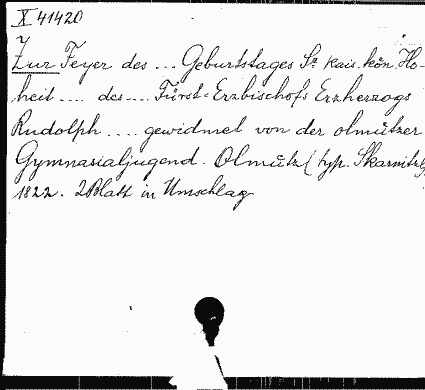 X 41420
Zur Feyer des ... Geburtstages Sr kais. kön. Ho-
heit .... des ... Fürst-Erzbischofs Erzherzogs
Rudolph .... gewidmet von der olmützer
Gymnasialjugend. Olmütz (typ. Skarnitzl)
1822. 2 Blatt in Umschlag